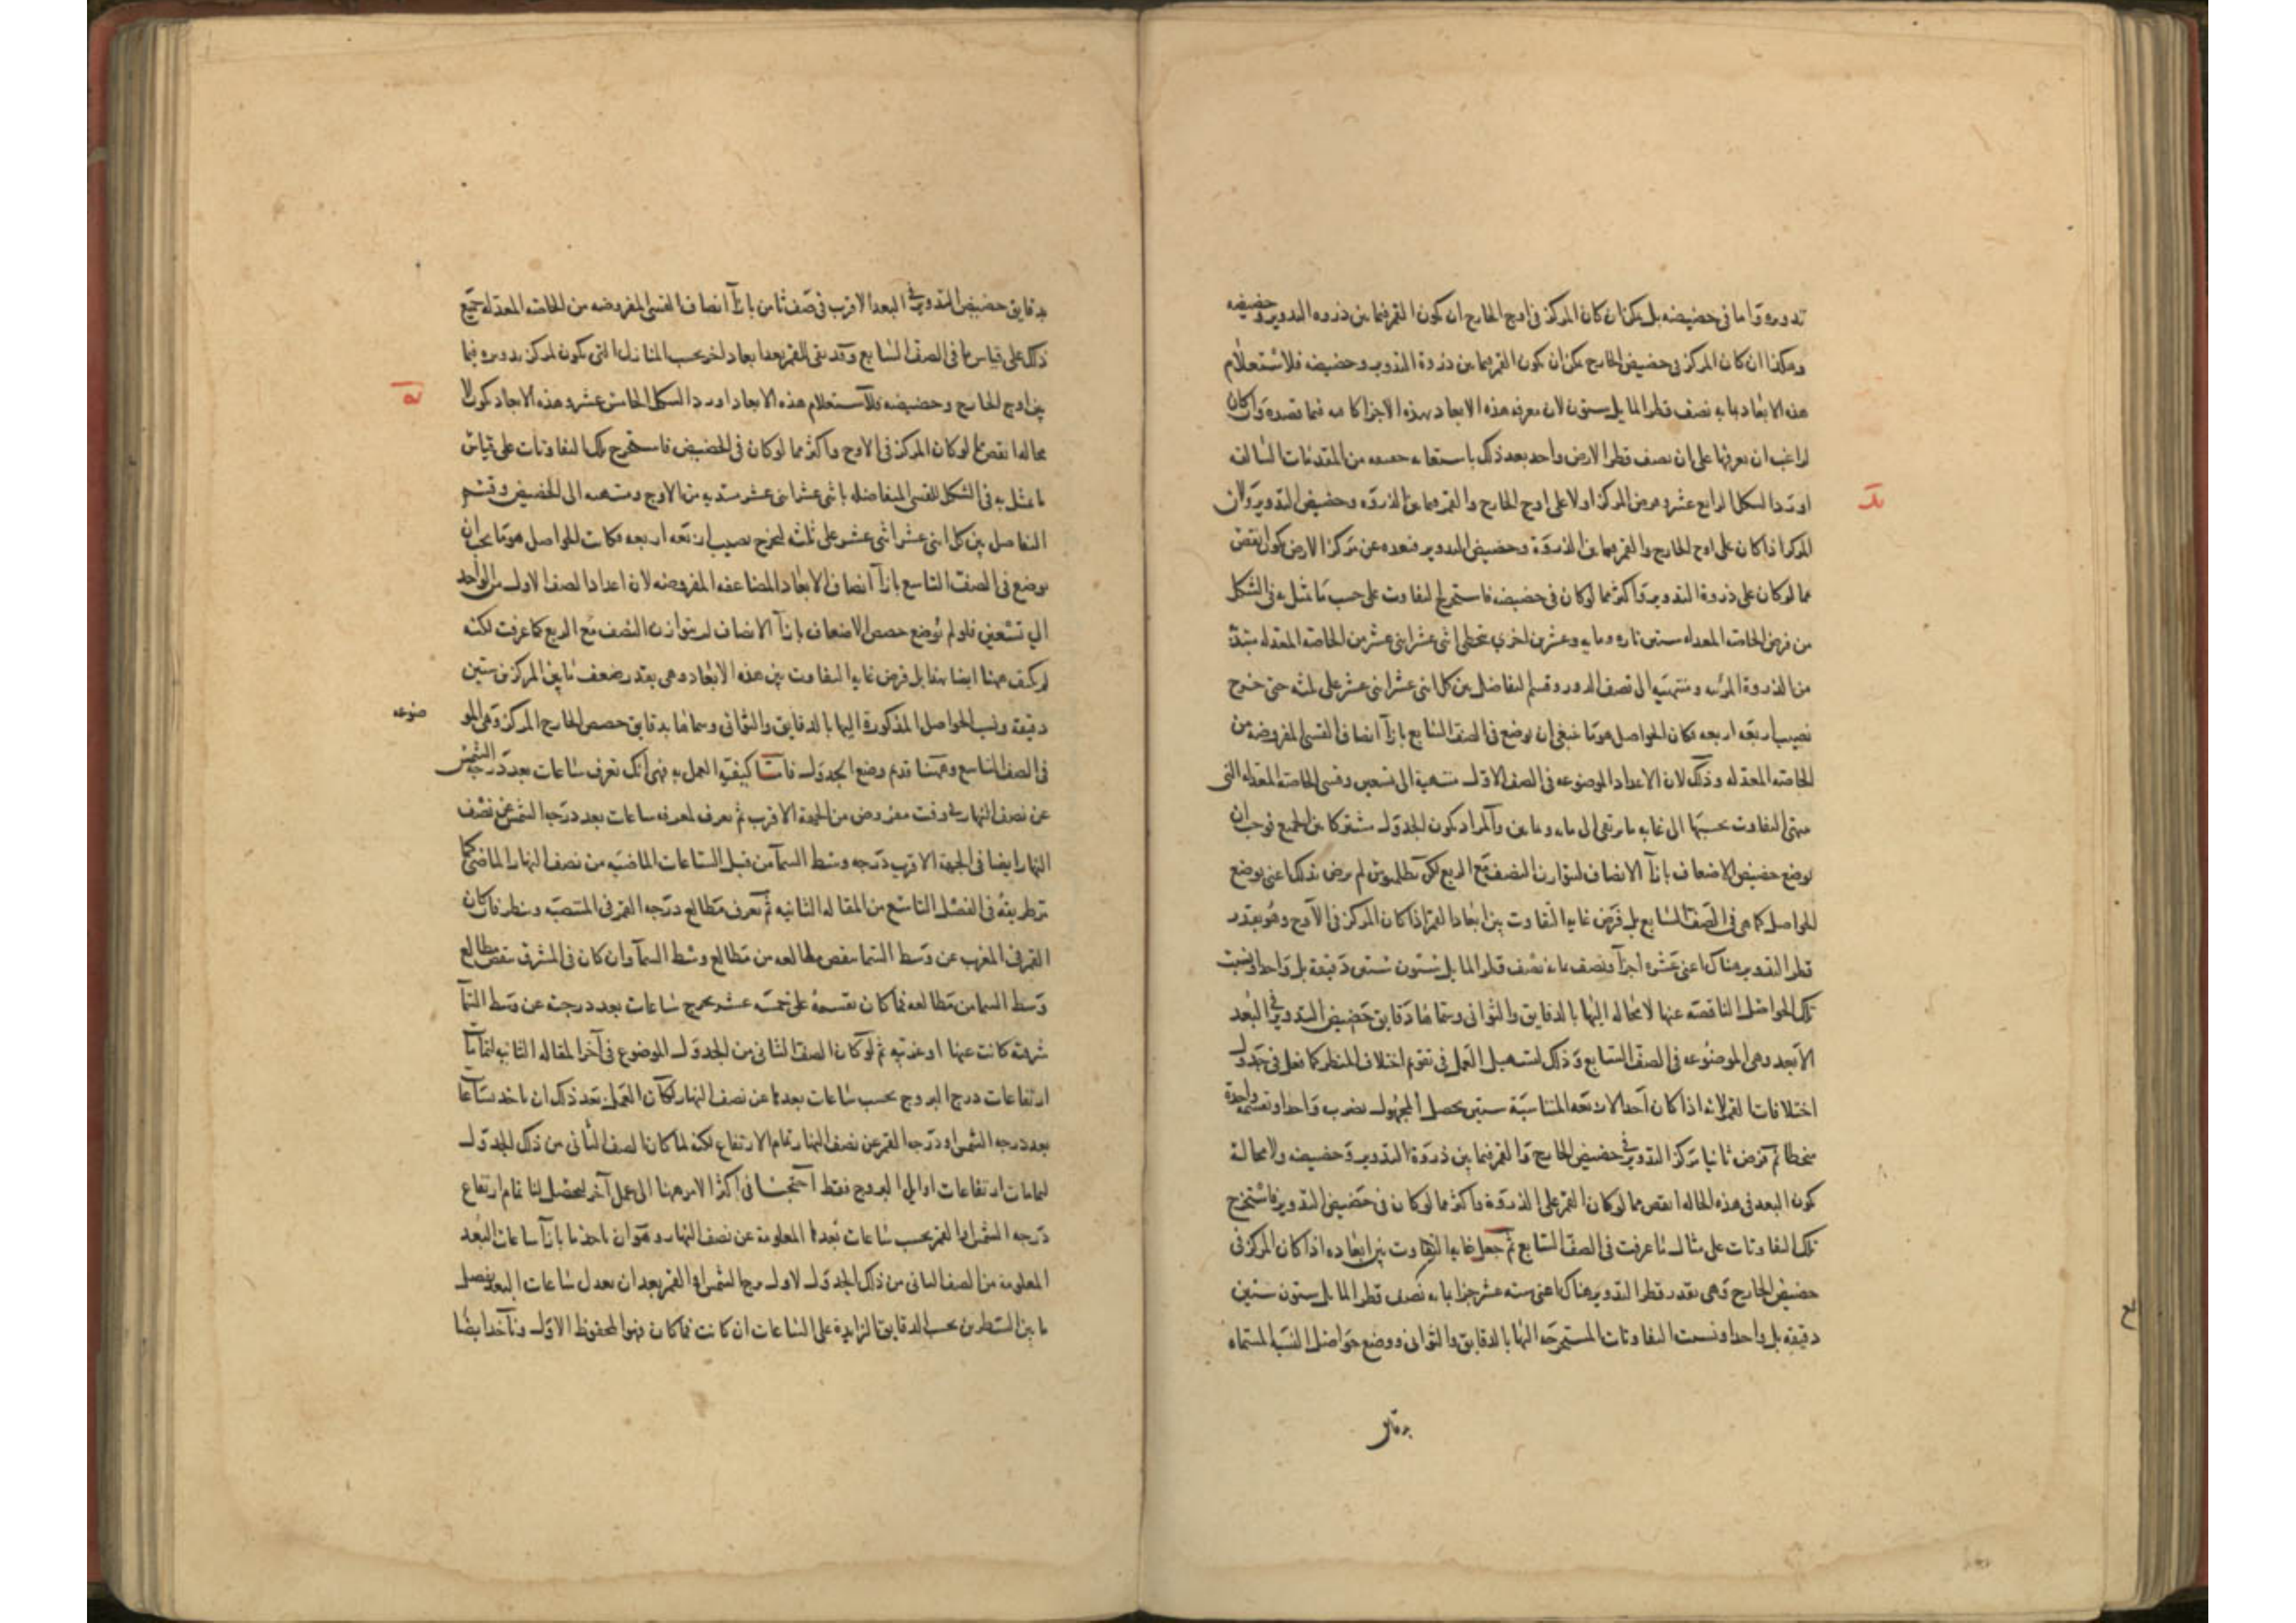 تدويره واما في حضيضه بل يمكن ان كان المركز في اوج الخارج ان يكون القمر فيما بين ذروه التدوير وحضيضه
وهكذا ان كان المركز في حضيض الخارج يمكن ان يكون القمر فيما بين ذروة التدوير وحضيضه فلاستعلام
هذه الابعاد بما به نصف قطر المايل ستون لان معرفه هذه الابعاد بهذه الاجزا كافيه فيما قصده وان كان
لراغب ان يعرفها على ان نصف قطر الارض واحد بعد ذلك باستعانه من المقدمات السالفه
اورد الشكل الرابع عشر وفرض المركز اولا على اوج الخارج والقمر فيما بين الذروه وحضيض التدوير ولان
يد
المركز اذا كان على اوج الخارج والقمر فيما بين الذروة وحضيض التدوير فبعده عن مركز الارض يكون انقص
مما لو كان على ذروة التدوير واكثر مما لو كان في حضيضه فاستخرج التفاوت على حسب ما مثل به في الشكل
من فرض الخاصه المعدله ستين تاره ومايه وعشرين اخري بتخطي اثني عشر اثني عشر من الخاصه المعدله مبتدئة
من الذروة المرئيه ومنتهيه الى نصف الدور وقسم التفاضل بين كل اثني عشر اثني عشر على ثلثه حتى خرج
نصيب اربعه اربعه فكان الحواصل هو ما ينبغي ان يوضع في الصف السابع بازآ انصاف القسي المفروضه من
الخاصه المعدله وذلك لان الاعداد الموضوعه في الصف الاول منتهية الى تسعين وقسي الخاصه المعدله التي
ينتهي التفاوت بحسبها الى غايه ما ترتقي الى مايه وثمانين والمراد كون الجدول مشتركا بين الجميع فوجب ان
يوضع حصص الاضعاف بازآ الانصاف ليتوازن النصف مع الربع لكن بطلميوس لم يرض بذلك اعني بوضع
الحواصل كما هي في الصف السابع بل فرض غايه التفاوت بين ابعاد القمر اذا كان المركز في الاوج وهو بقدر
قطر التدوير هناك اعني عشره اجزآ ونصف بما به نصف قطر المايل ستون ستين دقيقة بل واحدا ونسبت
تلك الحواصل الناقصه عنها لا محاله اليها بالدقايق والثواني وسماها دقايق حضيض التدوير في البعد
الابعد وهي الموضوعه في الصف السابع وذلك لتسهيل العمل في تقويم اختلاف المنظر كما فعل في جدول
اختلافات القمر لانه اذا كان احد الاربعه المتناسبة ستين يحصل المجهول بضرب واحد او قسمه واحدة
منحطا ثم فرض ثانيا مركز التدوير في حضيض الخارج والقمر فيما بين ذروة التدوير وحضيضه ولا محالة
يكون البعد في هذه الحاله انقص مما لو كان القمر على الذروة واكثر مما لو كان في حضيض التدوير فاستخرج
تلك التفاوتات على مثال ما عرفت في الصف السابع ثم جعل غايه التفاوت بين ابعاده اذا كان المركز في
حضيض الخارج وهي بقدر قطر التدوير هناك اعني سته عشر جزا بما به نصف قطر المايل ستون ستين
دقيقه بل واحدا ونسبت التفاوتات المستخرجه اليها بالدقايق والثواني ووضع حواصل النسب المسماه
بدقايق
بدقايق حضيض التدوير في البعد الاقرب في صف ثامن بازآ انصاف القسي المفروضه من الخاصه المعدله جميع
ذلك على قياس ما في الصف السابع وقد بقي للقمر بعد ابعاد اخر بحسب المنازل التي يكون لمركز تدويره فيما
بين اوج الخارج وحضيضه فلاستعلام هذه الابعاد اورد الشكل الخامس عشر وهذه الابعاد تكون لا
يه
محاله انقص مما لو كان المركز في الاوج واكثر مما لو كان في الحضيض فاستخرج تلك التفاوتات على قياس
ما مثل به في الشكل للقسي المتفاضله باثني عشر اثني عشر مبتديه من الاوج ومنتهيه الى الحضيض وقسم
التفاضل بين كل اثني عشر اثني عشر على ثلثه ليخرج نصيب اربعه اربعه فكانت الحواصل هو ما يجب ان
يوضع في الصف التاسع بازآ انصاف الابعاد المضاعفه المفروضه لان اعداد الصف الاول من الواحد
الي تسعين فلو لم توضع حصص الاضعاف بازآ الانصاف لم يتوازن النصف مع الربع كما عرفت لكنه
لم يكتف ههنا ايضا بهذا بل فرض غايه التفاوت بين هذه الابعاد وهي بقدر ضعف ما بين المركزين ستين
دقيقة ونسب الحواصل المذكورة اليها بالدقايق والثواني وسماها بدقايق حصص الخارج المركز وهي المو
ضوعه
في الصف التاسع وههنا قد تم وضع الجدول فاما كيفيه العمل به فهي انك تعرف ساعات بعد درجه الشمس
عن نصف النهار في وقت مفروض من الجهة الاقرب ثم تعرف لمعرفه ساعات بعد درجه الشمس عن نصف
النهار ايضا في الجهة الاقرب درجه وسط السمآ من قبل الساعات الماضيه من نصف النهار الماضي كما
مر طريقه في الفصل التاسع من المقاله الثانيه ثم تعرف مطالع درجه القمر في المنتصبه وتنظر فان كان
القمر في المغرب عن وسط السما ينقص مطالعه من مطالع وسط السمآ وان كان في المشرق ينقص مطالع
وسط السما من مطالعه فما كان نقسمه على خمسه عشر يخرج ساعات بعد درجته عن وسط السمآ
شرقيه كانت عنها او غربيه ثم لو كان الصف الثاني من الجدول الموضوع في آخر المقاله الثانيه لتمامات
ارتفاعات درج البروج بحسب ساعات بعدها عن نصف النهار لكان العمل بعد ذلك ان ناخذ بساعات
بعد درجه الشمس او درجه القمر عن نصف النهار تمام الارتفاع لكنه لما كان الصف الثاني من ذلك الجدول
لتمامات ارتفاعات اوايل البروج فقط احتجنا في اكثر الامر ههنا الى عمل آخر ليحصل لنا تمام ارتفاع
درجه الشمس او القمر بحسب ساعات بعدها المعلومة عن نصف النهار وهو ان ناخذ ما بازآ ساعات البعد
المعلومه من الصف الثاني من ذلك الجدول لاول برج الشمس او القمر بعد ان نعدل ساعات البعد بفضل
ما بين السطرين بحسب الدقايق الزايدة على الساعات ان كانت فما كان فهو المحفوظ الاول وناخذ ايضا